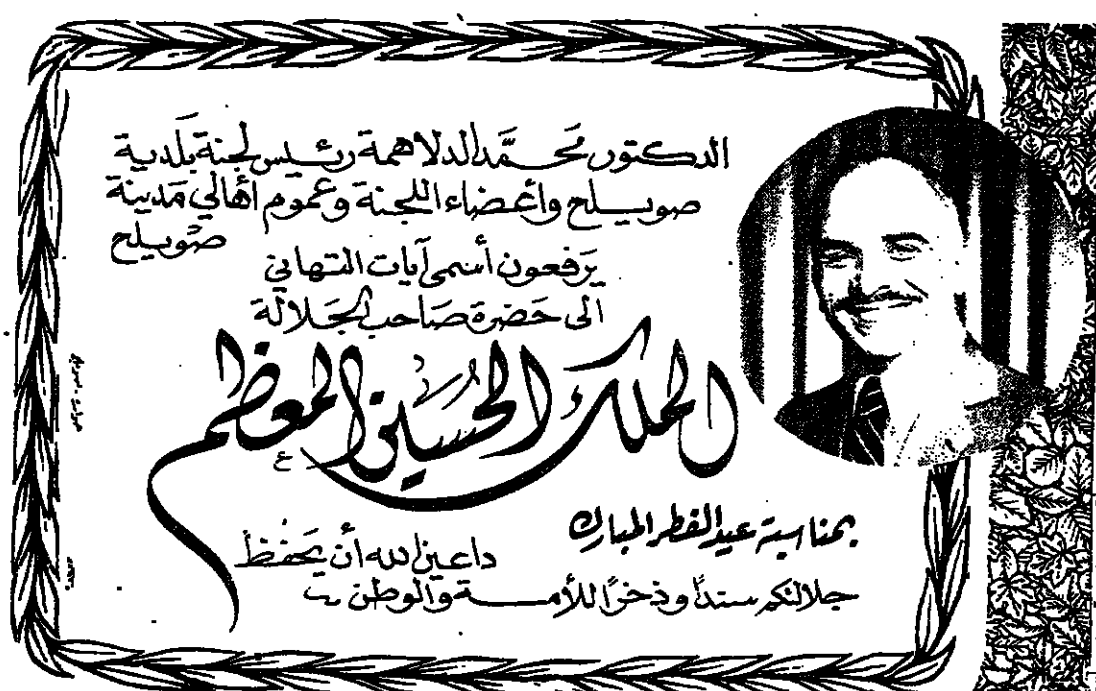 الدكتور محمَّد الدلاهمة رئيس لجنة بلَدية
صويلح وأعضاء اللجنة وعموم أهالي مَدينة
صويلح
يَرفعون أسمى آيات التهاني
الى حَضرة صَاحب الجَلالة
الملك الحُسين المعظم
بمناسبة عيد الفطر المبارك
داعين الله أن يَحفظ
جلالتكم سنداً وذخراً للأمة والوطن